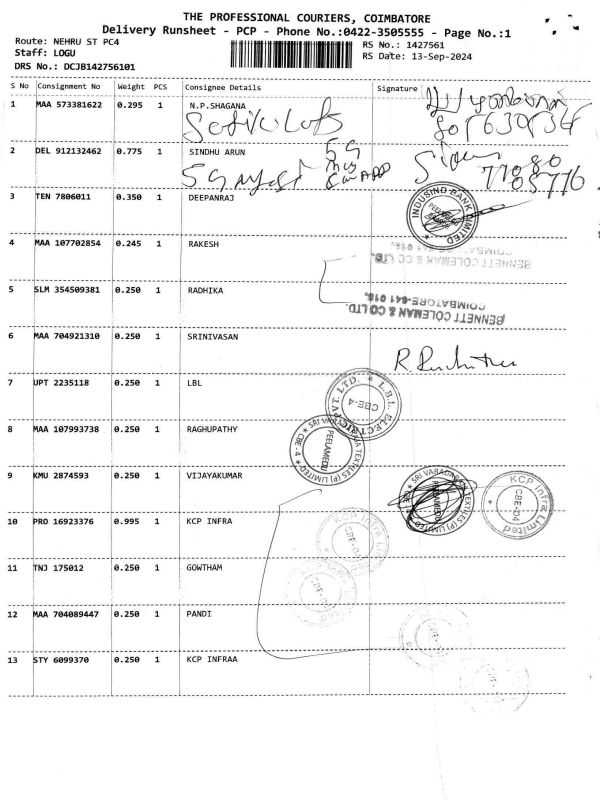 THE PROFESSIONAL COURIERS, COIMBATORE
Delivery Runsheet - PCP - Phone No.:0422-3505555 - Page No.:1
Route: NEHRU ST PC4
Staff: LOGU
DRS No.: DCJB142756101
RS No.: 1427561
RS Date: 13-Sep-2024
S No Consignment No Weight PCS Consignee Details Signature
1 MAA 573381622 0.295 1 N.P.SHAGANA
2 DEL 912132462 0.775 1 SINDHU ARUN
3 TEN 7806011 0.350 1 DEEPANRAJ
INDUSIND BANK LIMITED
4 MAA 107702854 0.245 1 RAKESH
BENNETT COLEMAN & CO LTD.
COIMBATORE-641 018.
5 SLM 354509381 0.250 1 RADHIKA
BENNETT COLEMAN & CO LTD.
COIMBATORE-641 018.
6 MAA 704921310 0.250 1 SRINIVASAN
7 UPT 2235118 0.250 1 LBL
CBE-4
8 MAA 107993738 0.250 1 RAGHUPATHY
PEELAMEDU
9 KMU 2874593 0.250 1 VIJAYAKUMAR
KCP Infra Limited
CBE-04
10 PRO 16923376 0.995 1 KCP INFRA
11 TNJ 175012 0.250 1 GOWTHAM
12 MAA 704089447 0.250 1 PANDI
13 STY 6099370 0.250 1 KCP INFRAA